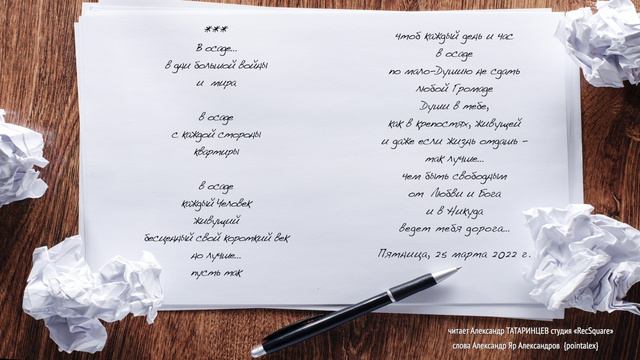 ***
В осаде...
в дни большой войны
и мира
в осаде
с каждой стороны
квартиры
в осаде
каждый Человек
живущий
бесценный свой короткий век
но лучше...
пусть так
чтоб каждый день и час
в осаде
по мало-Душию не сдать
любой Громаде
Души в тебе,
как в крепостях, живущей
и даже если жизнь отдашь -
так лучше...
чем быть свободным
от Любви и Бога
и в Никуда
ведет тебя дорога...
Пятница, 25 марта 2022 г.
читает Александр ТАТАРИНЦЕВ студия «RecSquare»
слова Александр Яр Александров {pointalex}